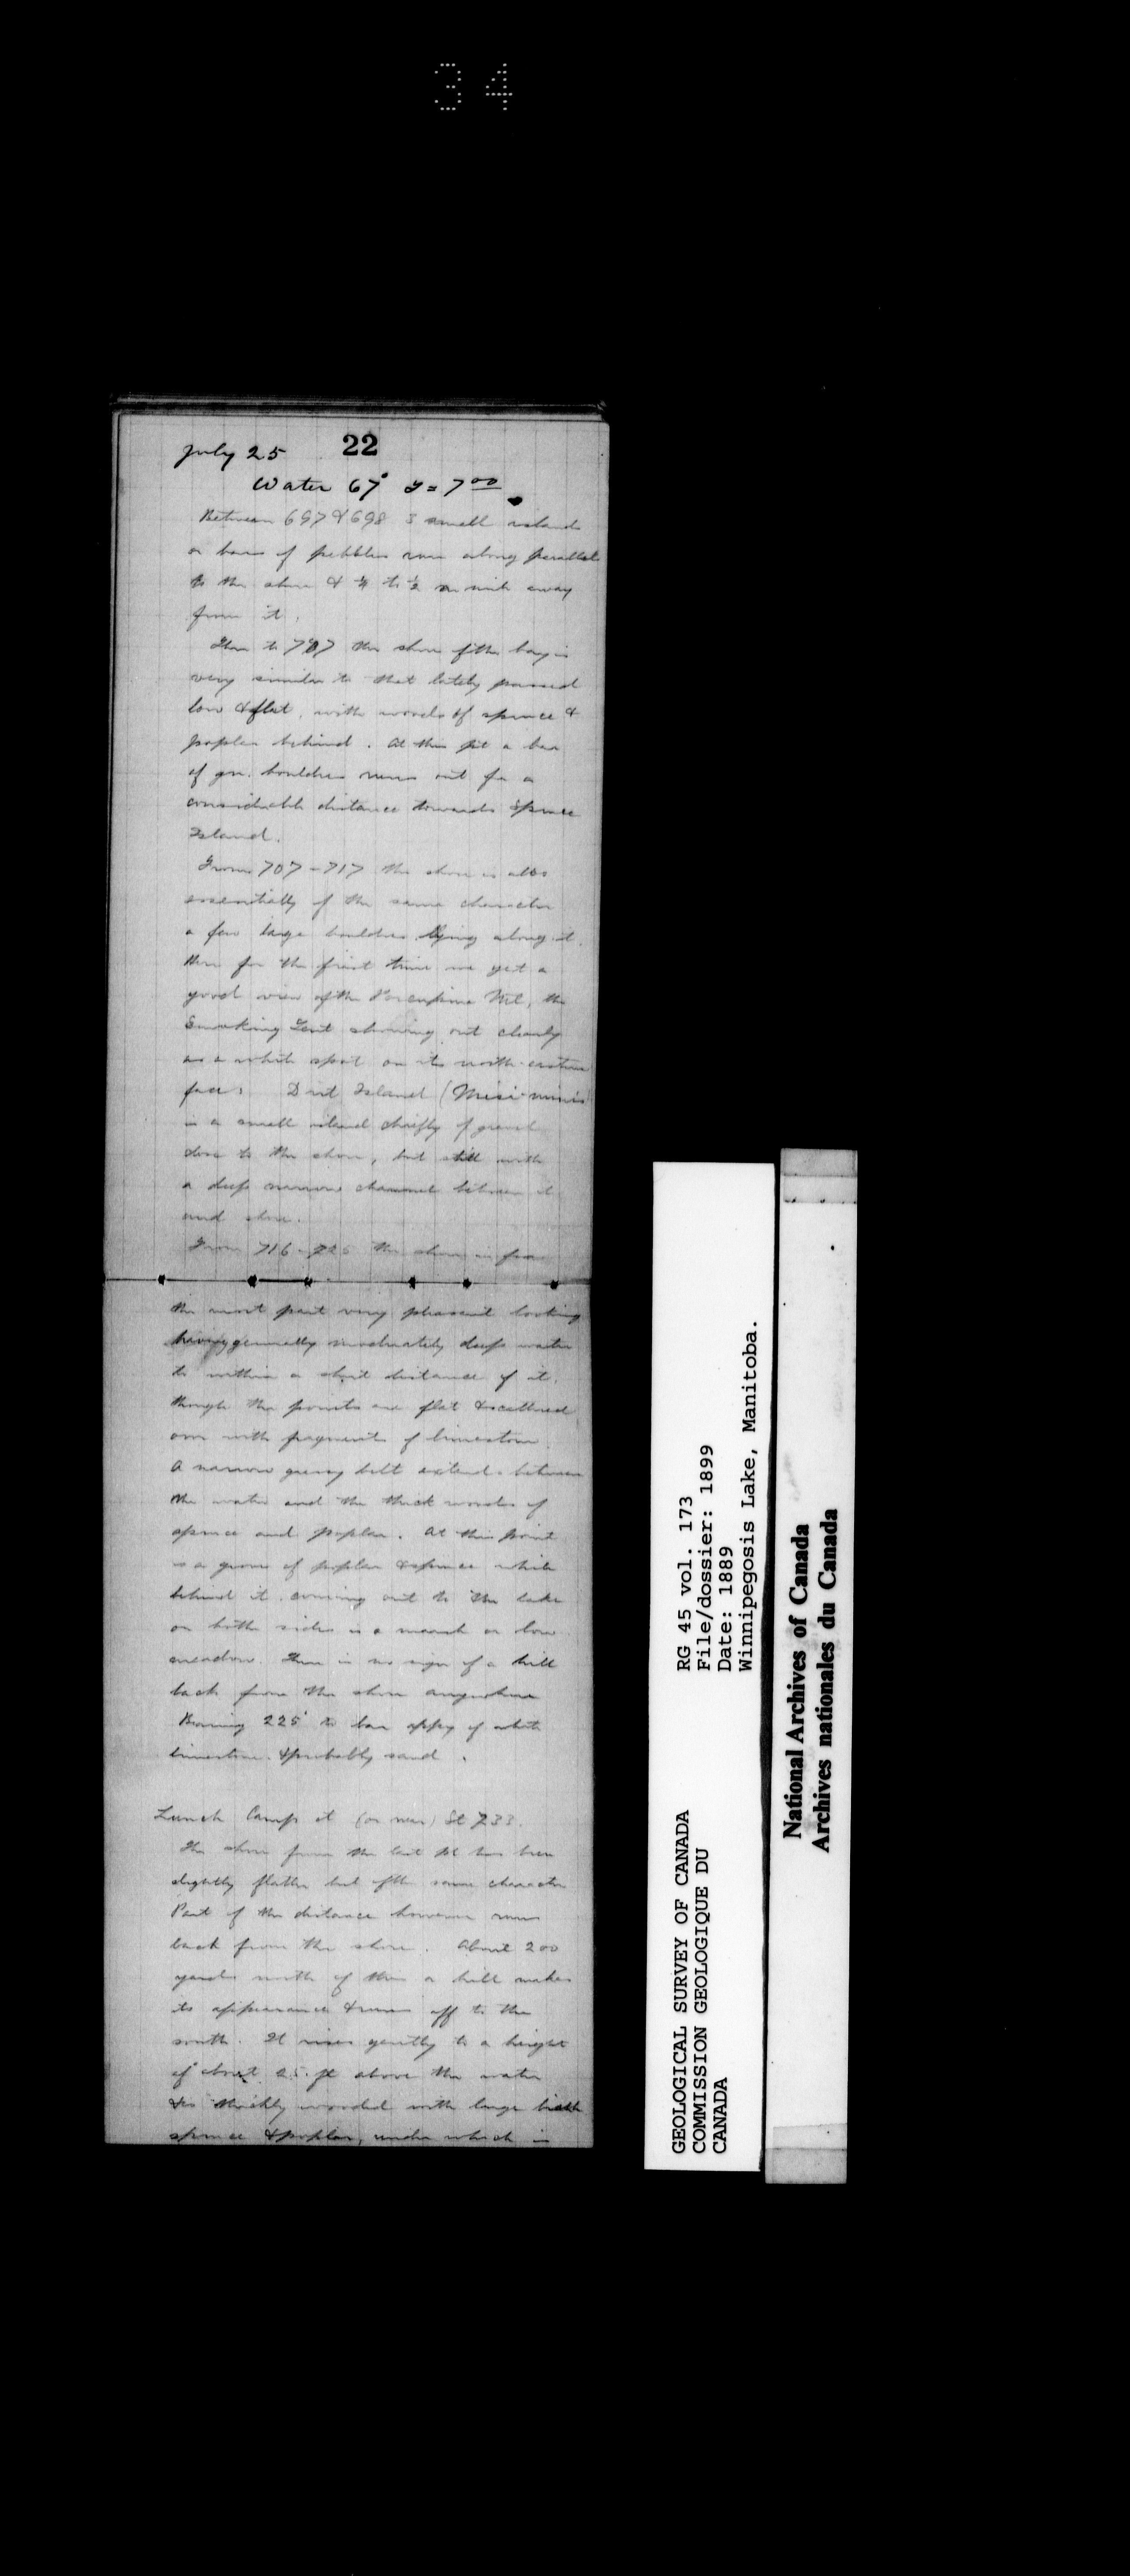 34
22
July 25
Water 67° T = 7 00
Between 697 & 698 3 small islands
or bars of pebbles run along parallel
to the shore & ¼ to ½ a mile away
from it.
Then to 707 the shore of the bay is
very similar to that lately passed
low & flat, with woods of spruce &
poplar behind. At this pt a bar
of gn. boulders runs out for a
considerable distance towards Spruce
Island.
From 707 - 717 the shore is also
essentially of the same character
a few large boulders lying along it.
Here for the first time we get a
good view of the Porcupine Mt, the
Smoking Tent showing out clearly
as a white spot on its north-eastern
face. Dirt Island (Misi-minis
is a small island chiefly of gravel
close to the shore, but still with
a deep narrow channel between it
and shore.
From 716 - 725 the shore is for
the most part very pleasant looking
having generally moderately deep water
to within a short distance of it,
though the points are flat & scattered
over with fragments of limestone.
A narrow grassy belt extends between
the water and the thick woods of
spruce and poplar. At this point
is a grove of poplar & spruce while
behind it coming out to the lake
on both sides is a marsh or low
meadow. There is no sign of a hill
back from the shore anywhere
Bearing 225° to bar appy of white
limestone & probably sand.
Lunch Camp at (or near) St 733
The shore from the last pt has been
slightly flatter but of the same character
Part of the distance however runs
back from the shore. About 200
yards north of this a hill makes
its appearance & runs off to the
south. It rises gently to a height
of about 25 ft above the water
& is thickly wooded with large birch
spruce & poplar, under which is
GEOLOGICAL SURVEY OF CANADA
COMMISSION GEOLOGIQUE DU
CANADA
RG 45 vol. 173
File/dossier: 1899
Date: 1889
Winnipegosis Lake, Manitoba.
National Archives of Canada
Archives nationales du Canada